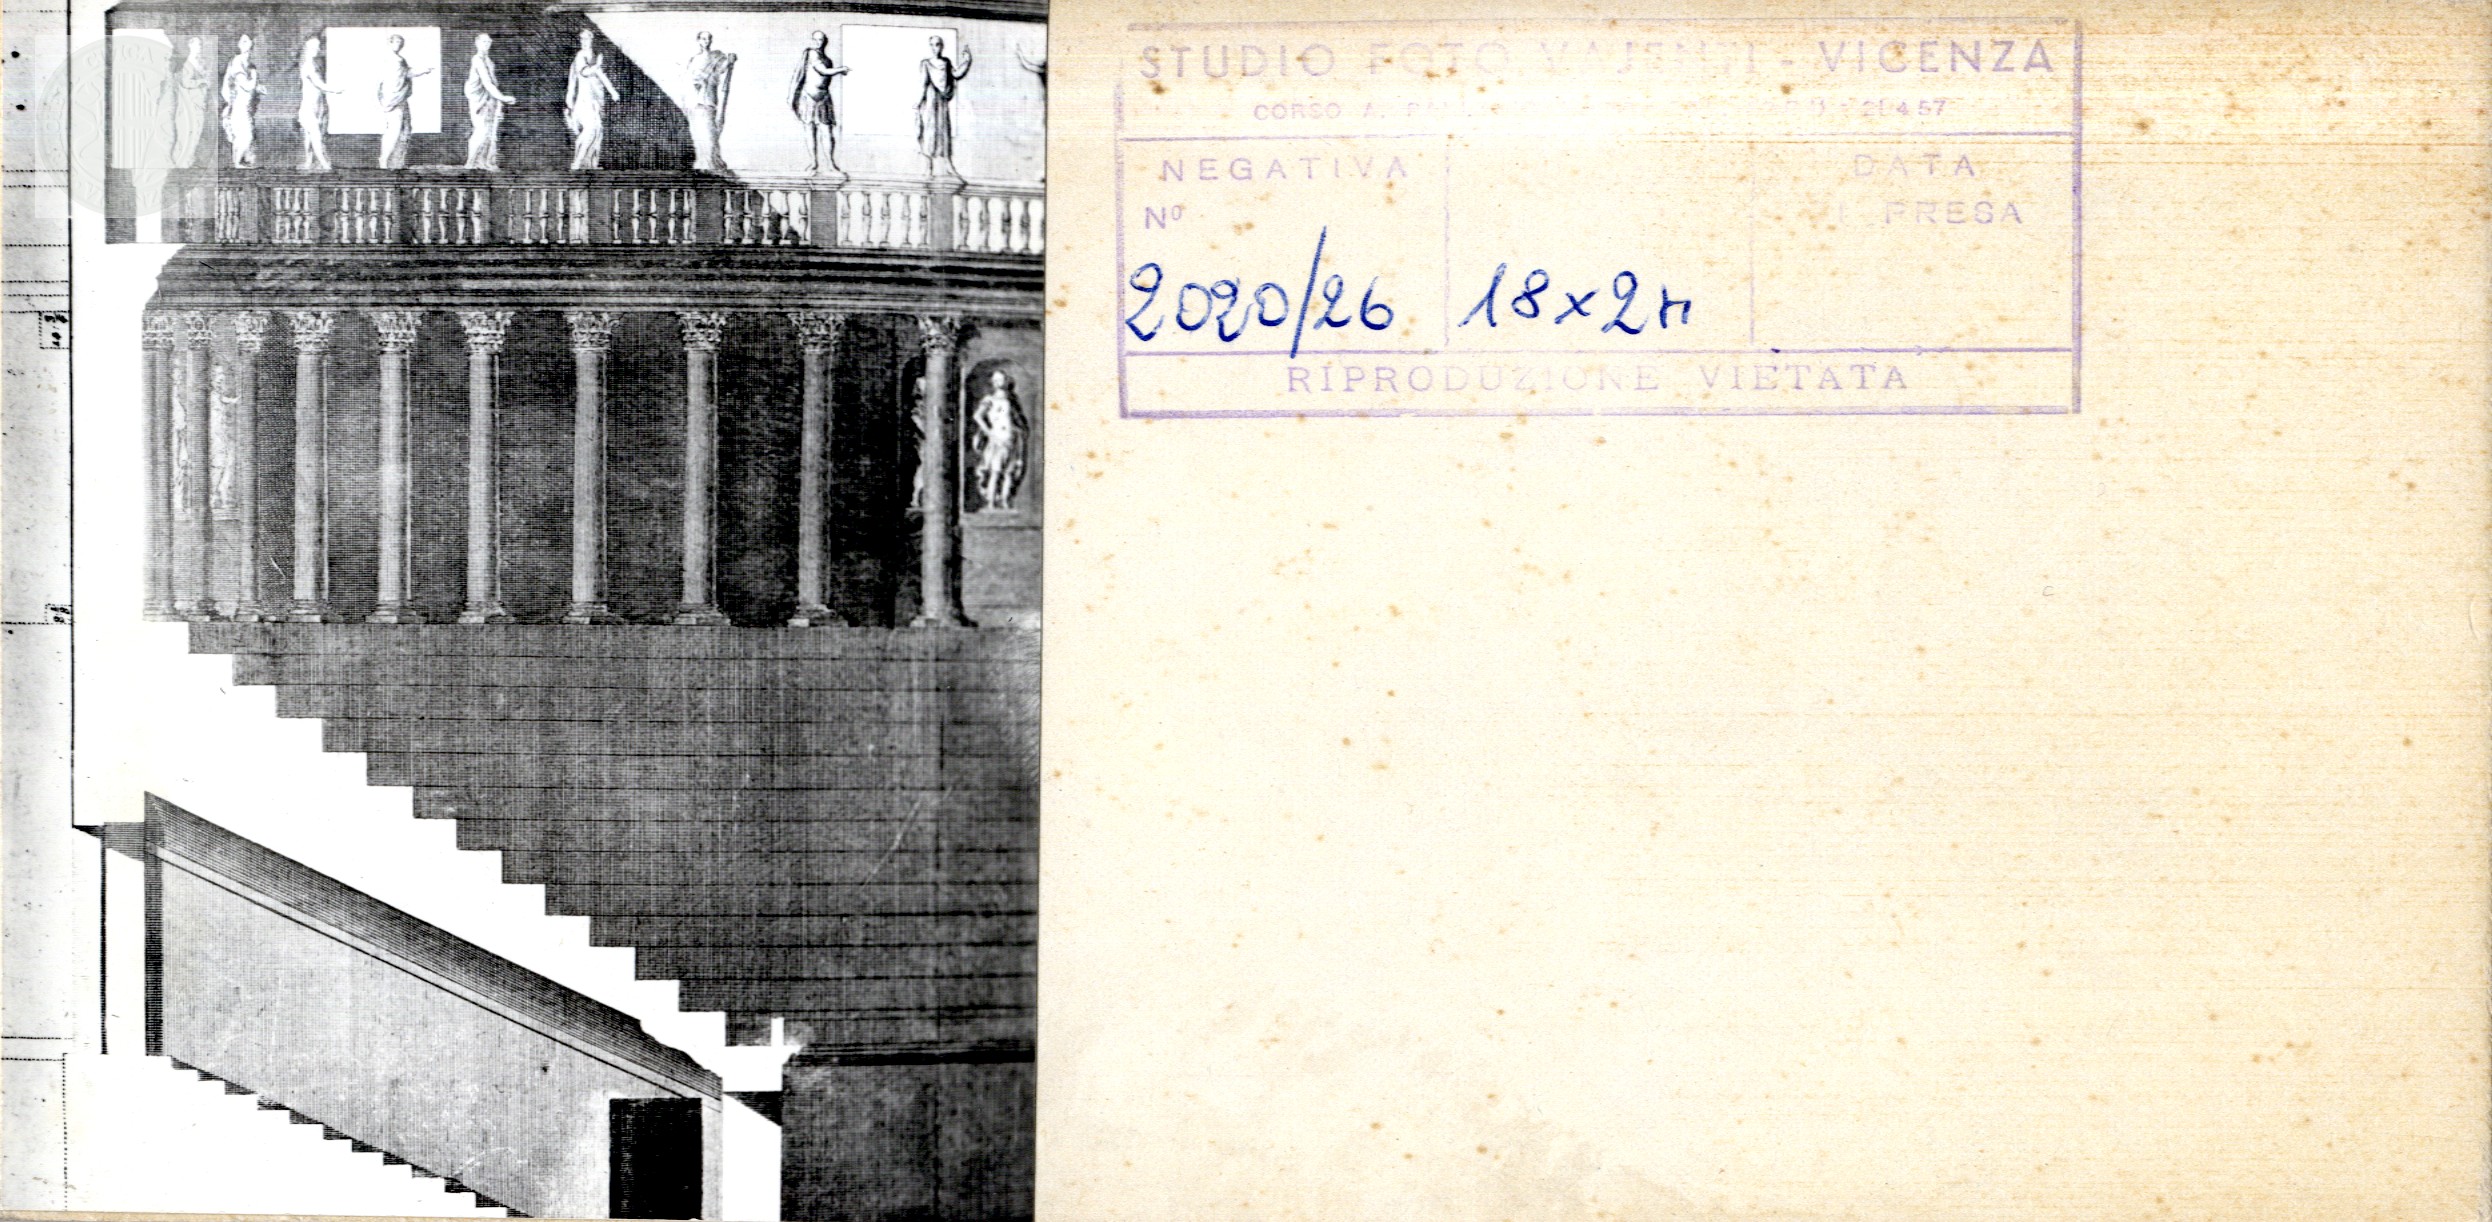 STUDIO FOTO VAJENTI - VICENZA
CORSO A. 21457
NEGATIVA
Nº
DATA
PRESA
2020/26
18x24
RIPRODUZIONE VIETATA